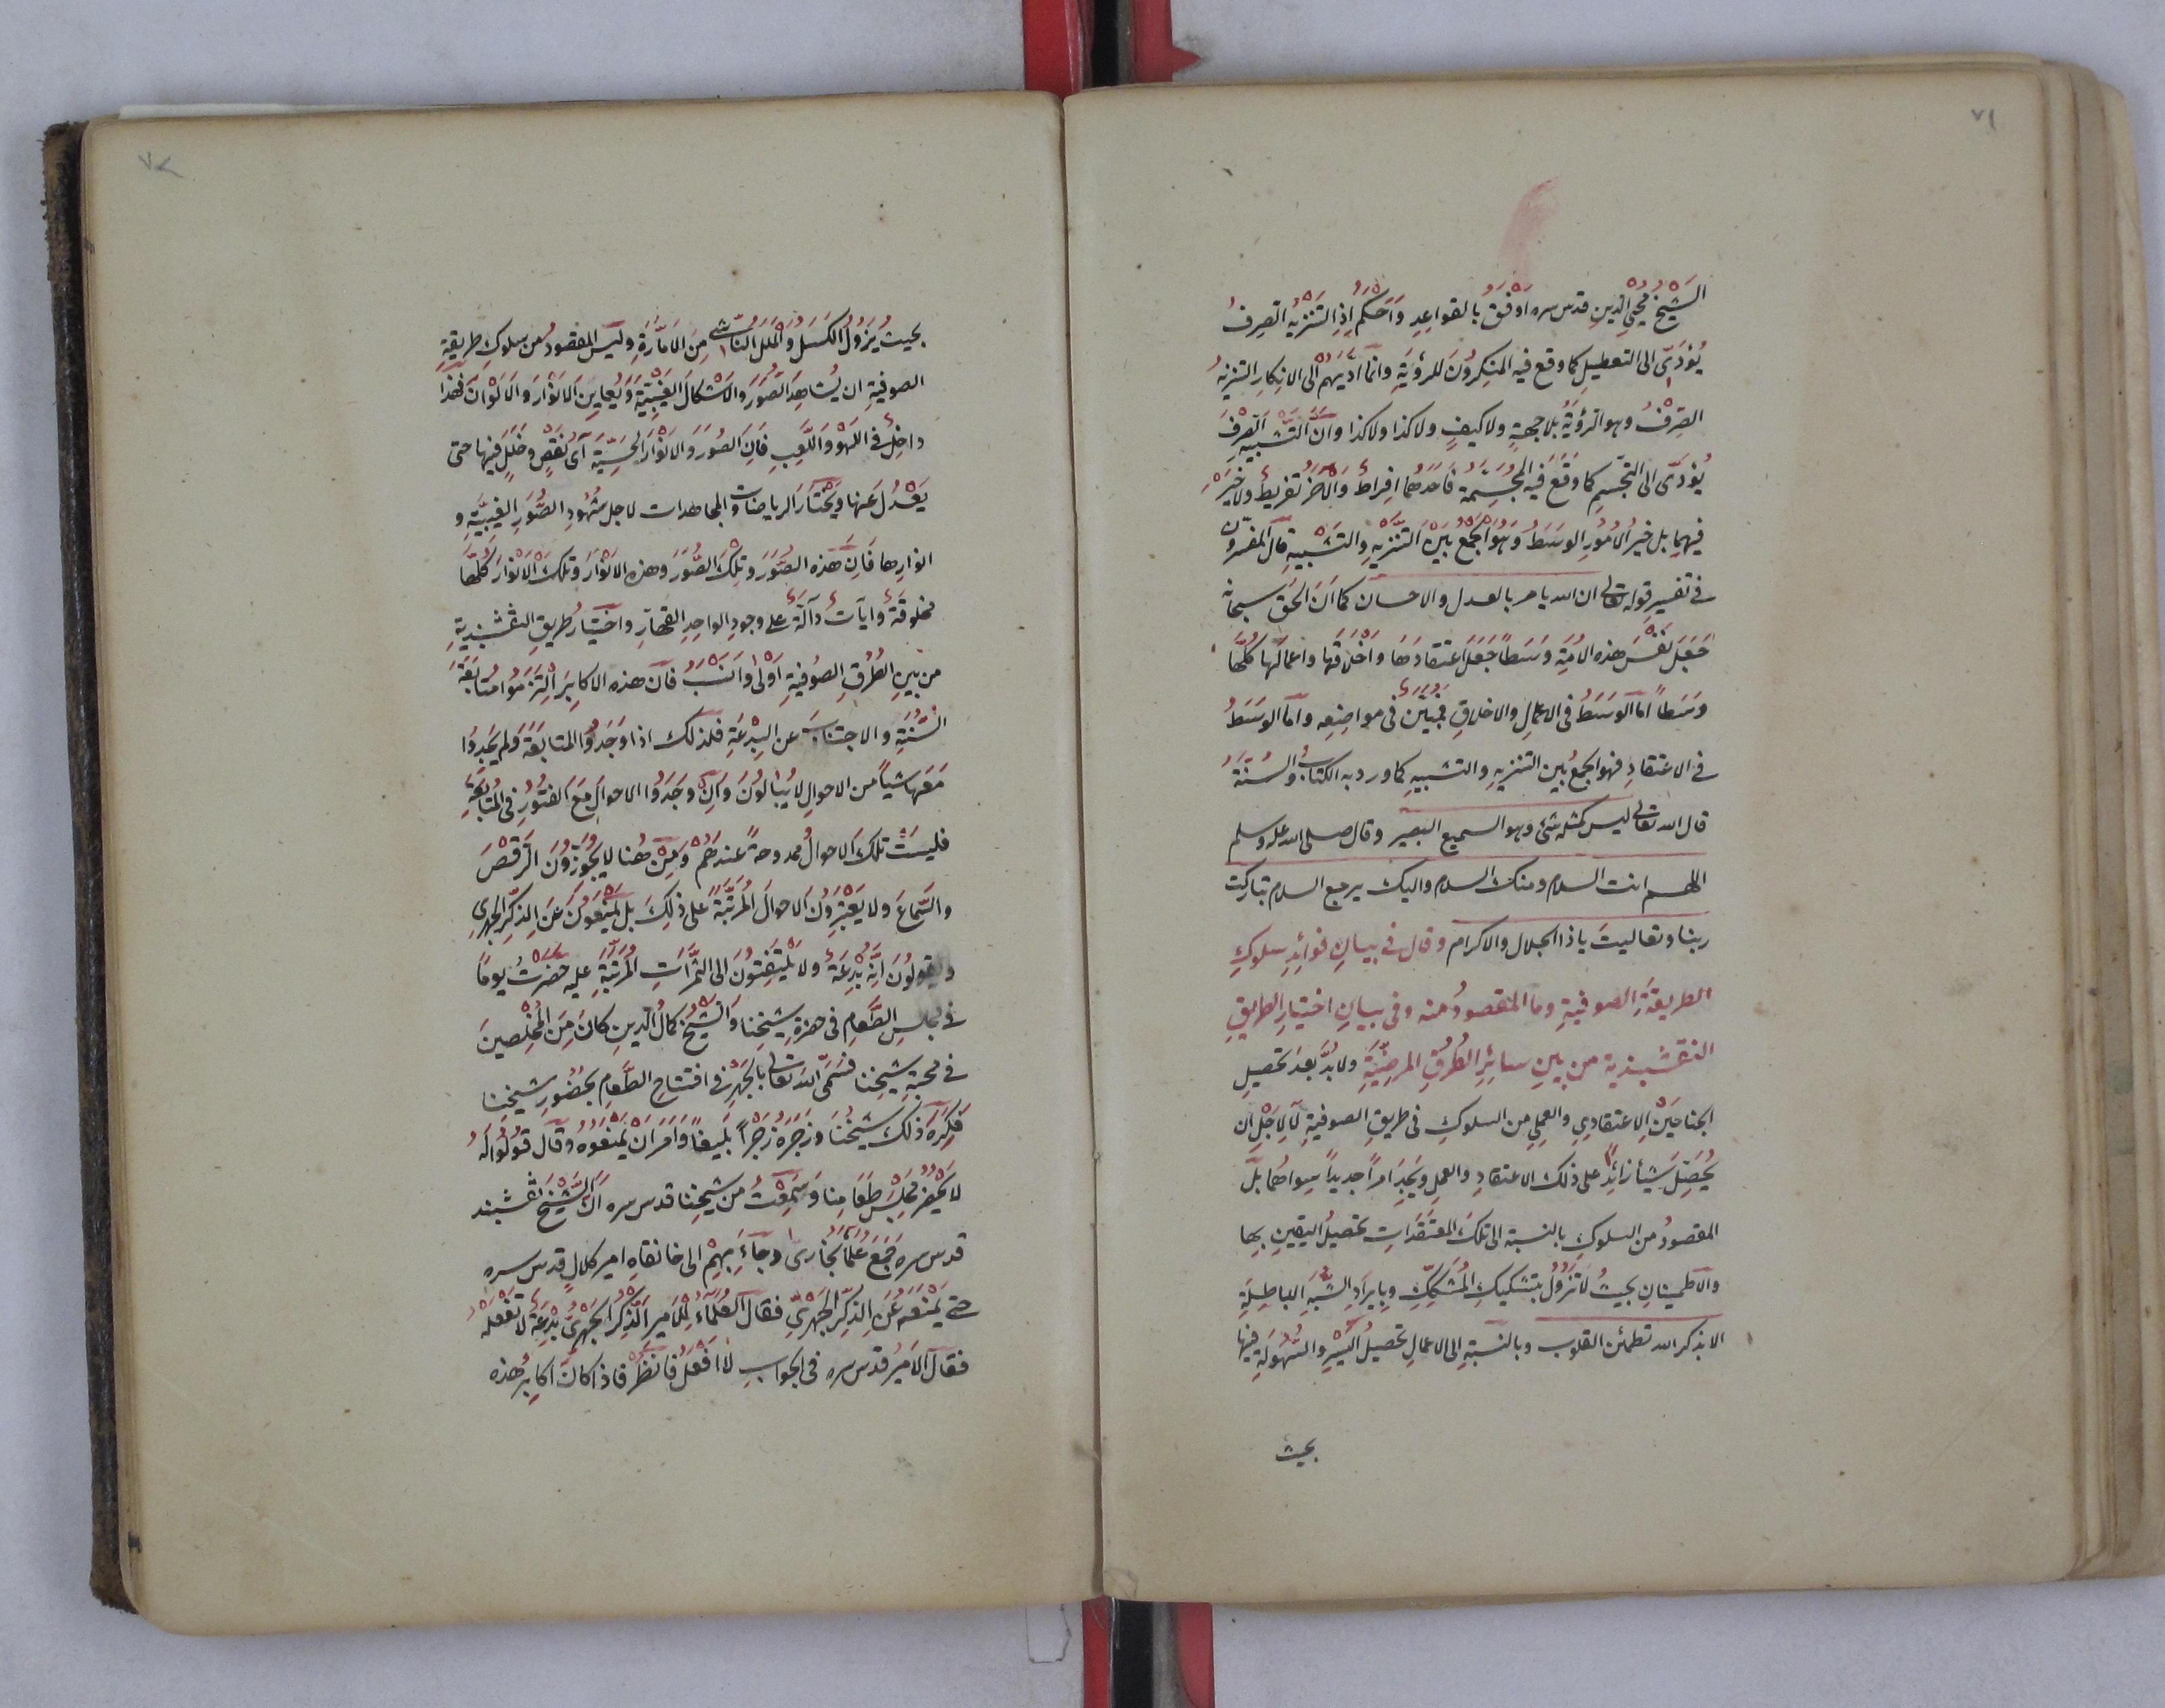 ٧١
الشيخ محيي الدين قدس سره اوفق بالقواعد واحكم اذ التنزيه الصرف
يؤدى الى التعطيل كما وقع فيه المنكرون للرؤية وانما اديهم الى الانكار التنزيه
الصرف وهو الرؤية بلا جهة ولا كيف ولا كذا ولا كذا وان التشبيه الصرف
يؤدى الى التجسيم كما وقع فيه المجسمة فاحدهما افراط والآخر تفريط ولا خير
فيهما بل خير الامور الوسط وهو الجمع بين التنزيه والتشبيه قال المفسرون
فى تفسير قوله تعالى ان الله يامر بالعدل والاحسان كما ان الحق سبحانه
جعل نفس هذه الامة وسطا جعل اعتقادها واخلاقها واعمالها كلها
وسطا اما الوسط فى الاعمال والاخلاق فمبين فى مواضعه واما الوسط
فى الاعتقاد فهو الجمع بين التنزيه والتشبيه كما ورد به الكتاب والسنة
قال الله تعالى ليس كمثله شئ وهو السميع البصير وقال صلى الله عليه وسلم
اللهم انت السلام ومنك السلام واليك يرجع السلام تباركت
ربنا وتعاليت ياذا الجلال والاكرام وقال فى بيان فوائد سلوك
الطريقة الصوفية وما المقصود منه وفى بيان اختيار الطريق
النقشبندية من بين سائر الطرق المرضية ولا بد بعد تحصيل
الجناحين الاعتقادي والعملي من السلوك فى طريق الصوفية لا لاجل ان
يحصل شيأ زائدا على ذلك الاعتقاد والعمل ويجد امرا جديدا سواهما بل
المقصود من السلوك بالنسبة الى تلك المعتقدات تحصيل اليقين بها
والاطمينان بحيث لا تزول بتشكيك المشكك وبايراد الشبه الباطلة
الا بذكر الله تطمئن القلوب وبالنسبة الى الاعمال تحصيل اليسر والسهولة فيها
بحيث
٧٢
بحيث يزول الكسل والملل الناشى من الامارة وليس المقصود من سلوك طريقة
الصوفية ان يشاهد الصور والاشكال الغيبية ويعاين الانوار والالوان فهذا
داخل فى اللهو واللعب فان الصور والانوار الحسية اى نقص وخلل فيها حتى
يعدل عنها ويختار الرياضات والمجاهدات لاجل شهود الصور الغيبية و
انوارها فان هذه الصور وتلك الصور وهذه الانوار وتلك الانوار كلها
مخلوقة وآيات دآلة على وجود الواحد القهار واختيار طريق النقشبندية
من بين الطرق الصوفية اولى وانسب فان هذه الاكابر التزموا متابعة
السنة والاجتناب عن البدعة فلذلك اذا وجدوا المتابعة ولم يجدوا
معها شيأ من الاحوال لا يبالون وان وجدوا الاحوال مع الفتور فى المتابعة
فليست تلك الاحوال ممدوحة عندهم ومن هنا لا يجوزون الرقص
والسماع ولا يعتبرون الاحوال المرتبة على ذلك بل يمنعون عن الذكر الجهري
ويقولون انه بدعة ولا يلتفتون الى الثمرات المرتبة عليه حضرت يوما
فى مجلس الطعام فى حضرة شيخنا والشيخ كمال الدين كان من المخلصين
فى محبة شيخنا فسمى الله تعالى بالجهر فى افتتاح الطعام بحضور شيخنا
فكره ذلك شيخنا وزجره زجرا بليغا وامر ان يمنعوه وقال قولوا له
لا يحضر مجلس طعامنا وسمعت من شيخنا قدس سره ان الشيخ نقشبند
قدس سره جمع علماء بخارى وجاء بهم الى خانقاه امير كلال قدس سره
حتى يمنعه عن الذكر الجهري فقال العلماء للامير الذكر الجهري بدعة لا تفعله
فقال الامير قدس سره فى الجواب لا افعل فانظر فاذا كان اكابر هذه